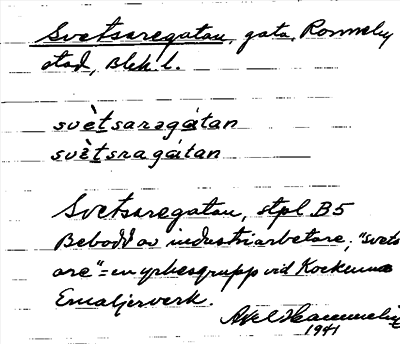 Svetsaregatan, gata, Ronneby
stad, Blek. l.
svètsaregátan
svètsragátan
Svetsaregatan, stpl B5
Bebodd av industriarbetare, "svets
are" = en yrkesgrupp vid Kockums
Emaljerverk.
Axel
1941